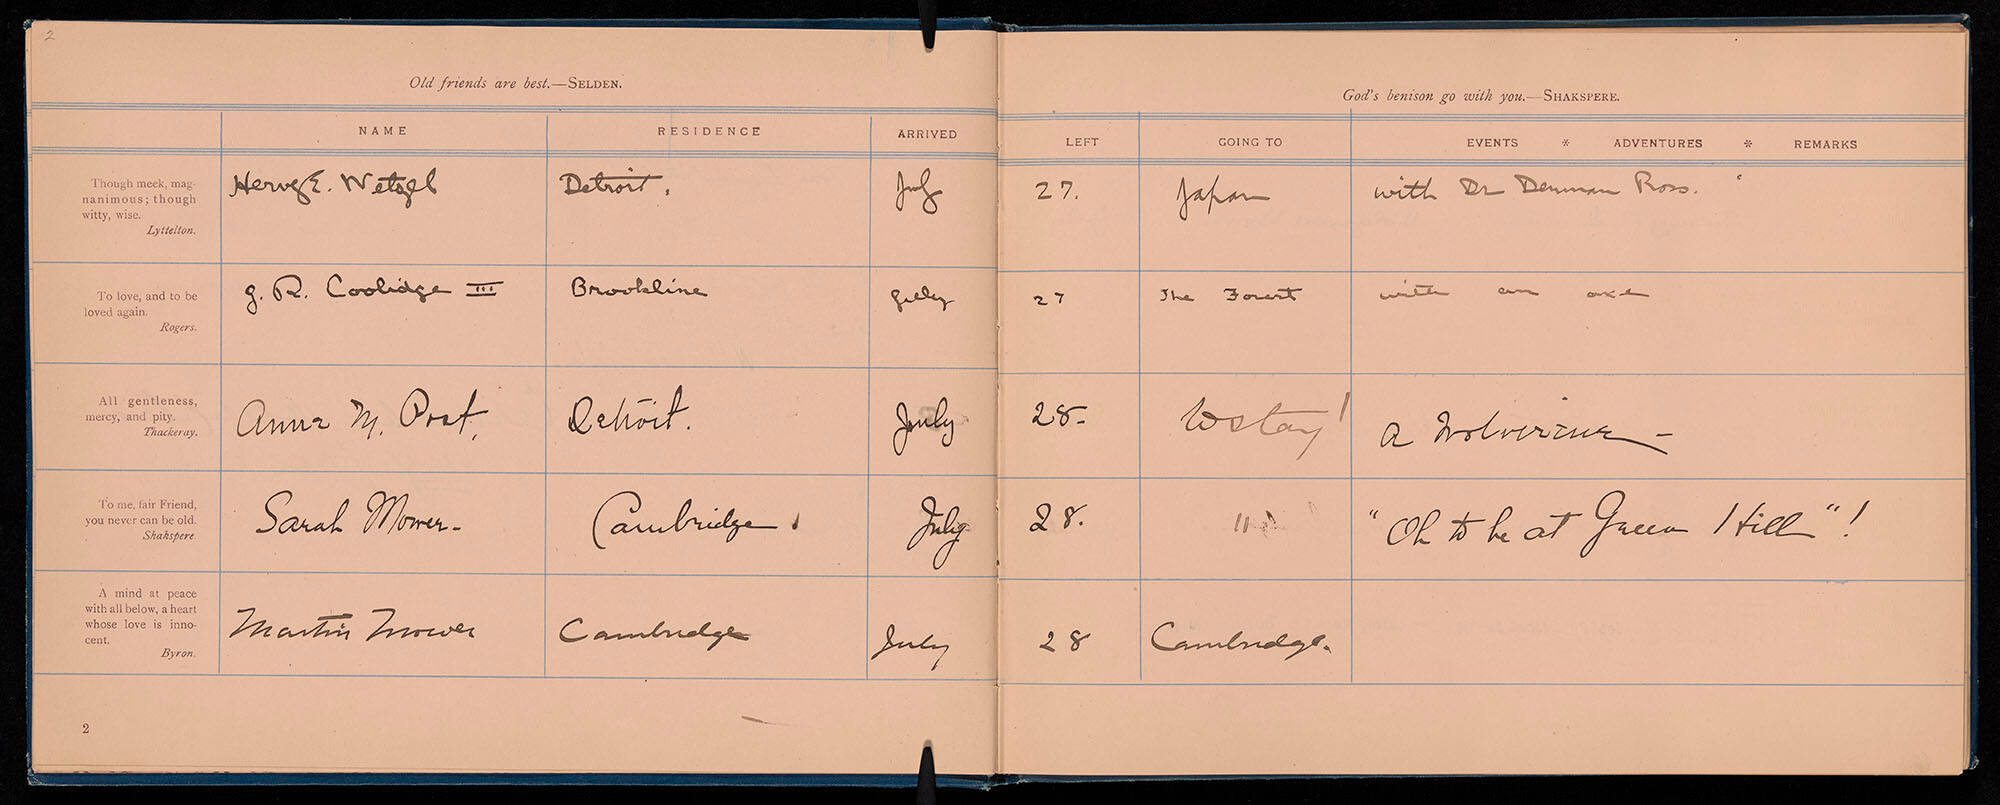 2
Old friends are best.—SELDEN.
God's benison go with you.—SHAKSPERE.
NAME RESIDENCE ARRIVED LEFT GOING TO EVENTS * ADVENTURES * REMARKS
Though meek, mag-
nanimous; though
witty, wise.
Lyttelton.
Hervey E. Wetzel Detroit. July 27. Japan with Dr Denman Ross.
To love, and to be
loved again.
Rogers.
J. R. Coolidge III Brookline July 27 The Forest with an axe
All gentleness,
mercy, and pity.
Thackeray.
Anne M. Post. Detroit. July 28- to stay! A Wolverine –
To me, fair Friend,
you never can be old.
Shakspere.
Sarah Mower- Cambridge. July 28. "Oh to be at Green Hill"!
A mind at peace
with all below, a heart
whose love is inno-
cent.
Byron.
Martin Mower Cambridge July 28 Cambridge.
2